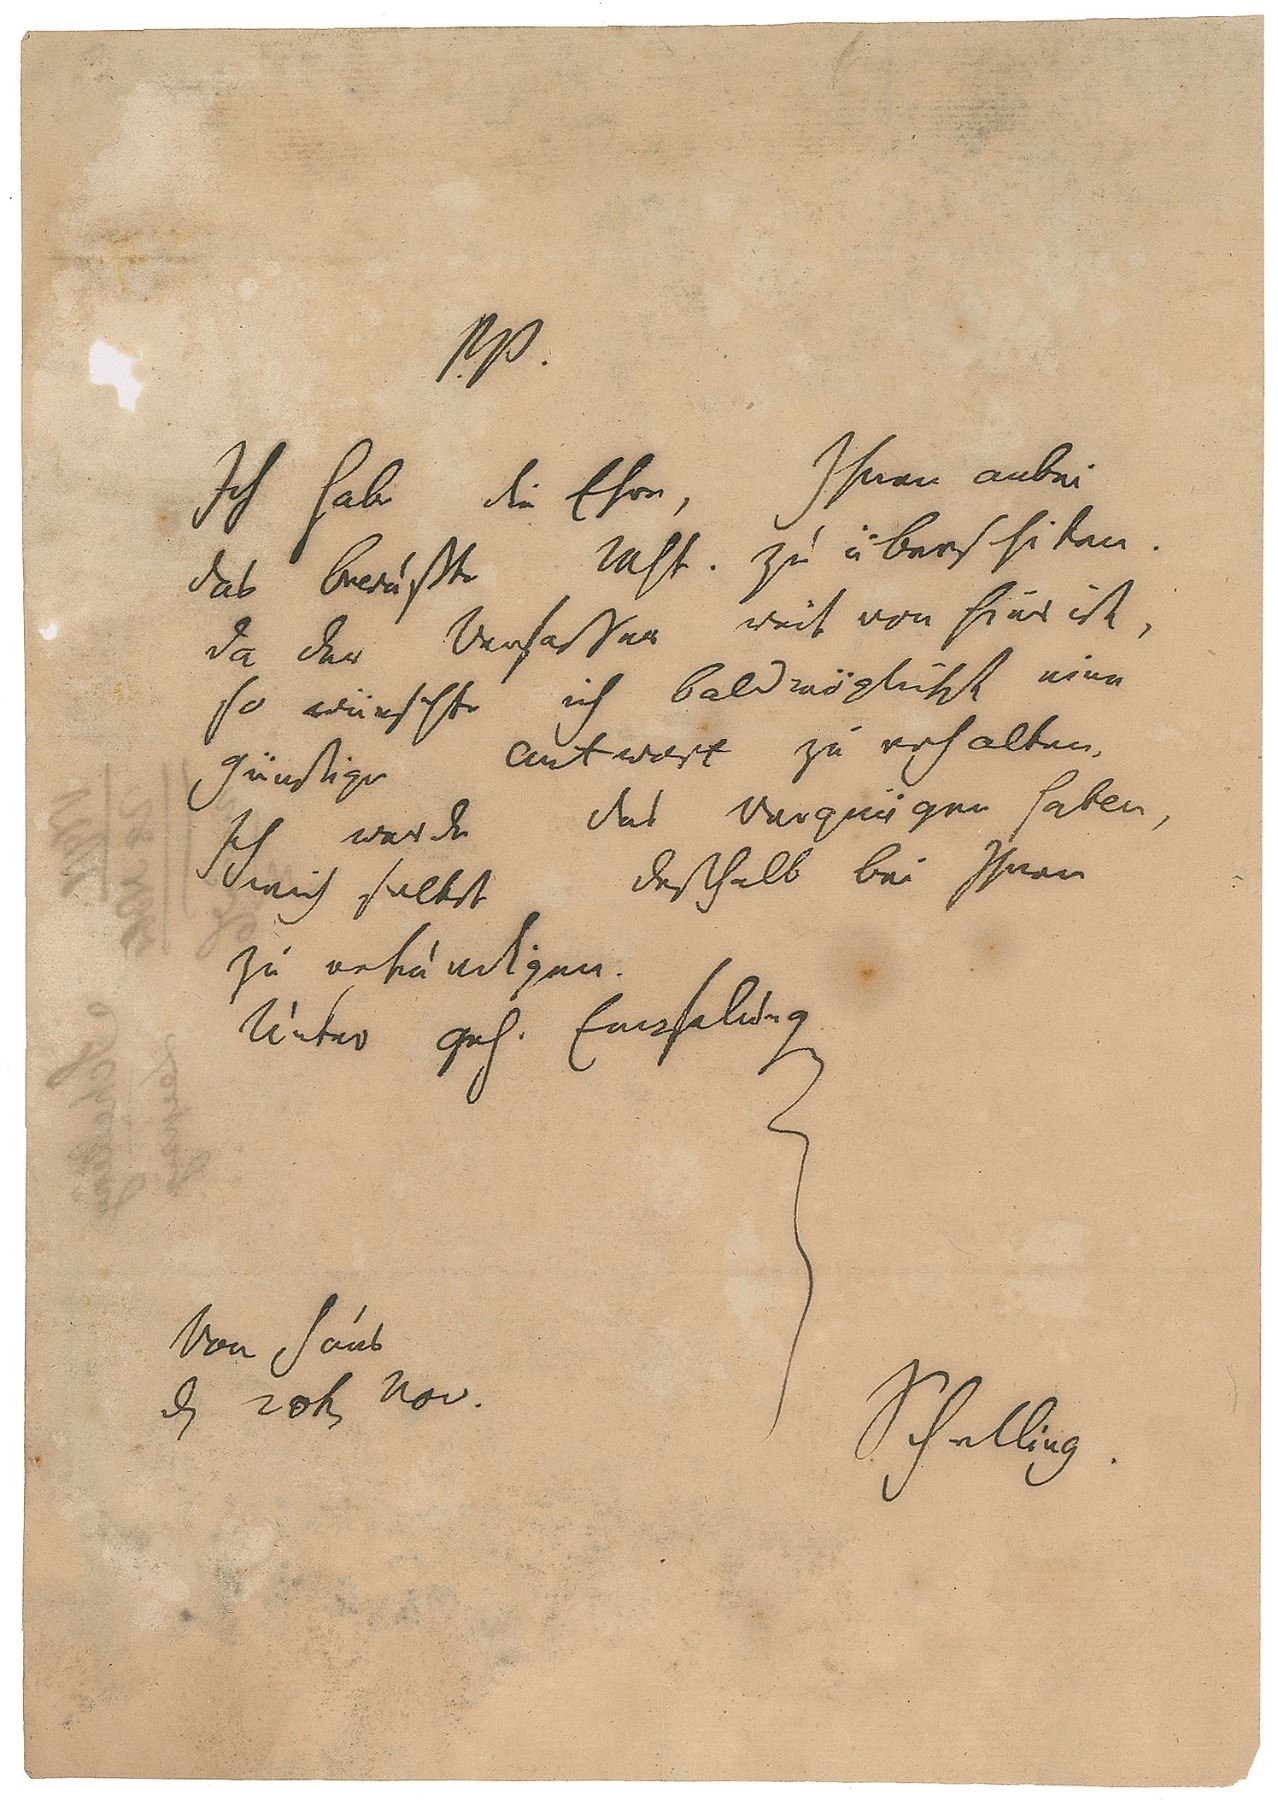 P.P.
Ich habe die Ehre, Ihnen anbei
das bewußte Mst. zu überschiken.
da der Verfasser weit von hier ist,
so wünschte ich baldmöglichst eine
günstige Antwort zu erhalten.
Ich werde das Vergnügen haben,
mich selbst deßhalb bei Ihnen
zu erkundigen.
Unter geh. Empfelung
Von Haus
d. 20t. Nov.
Schelling.